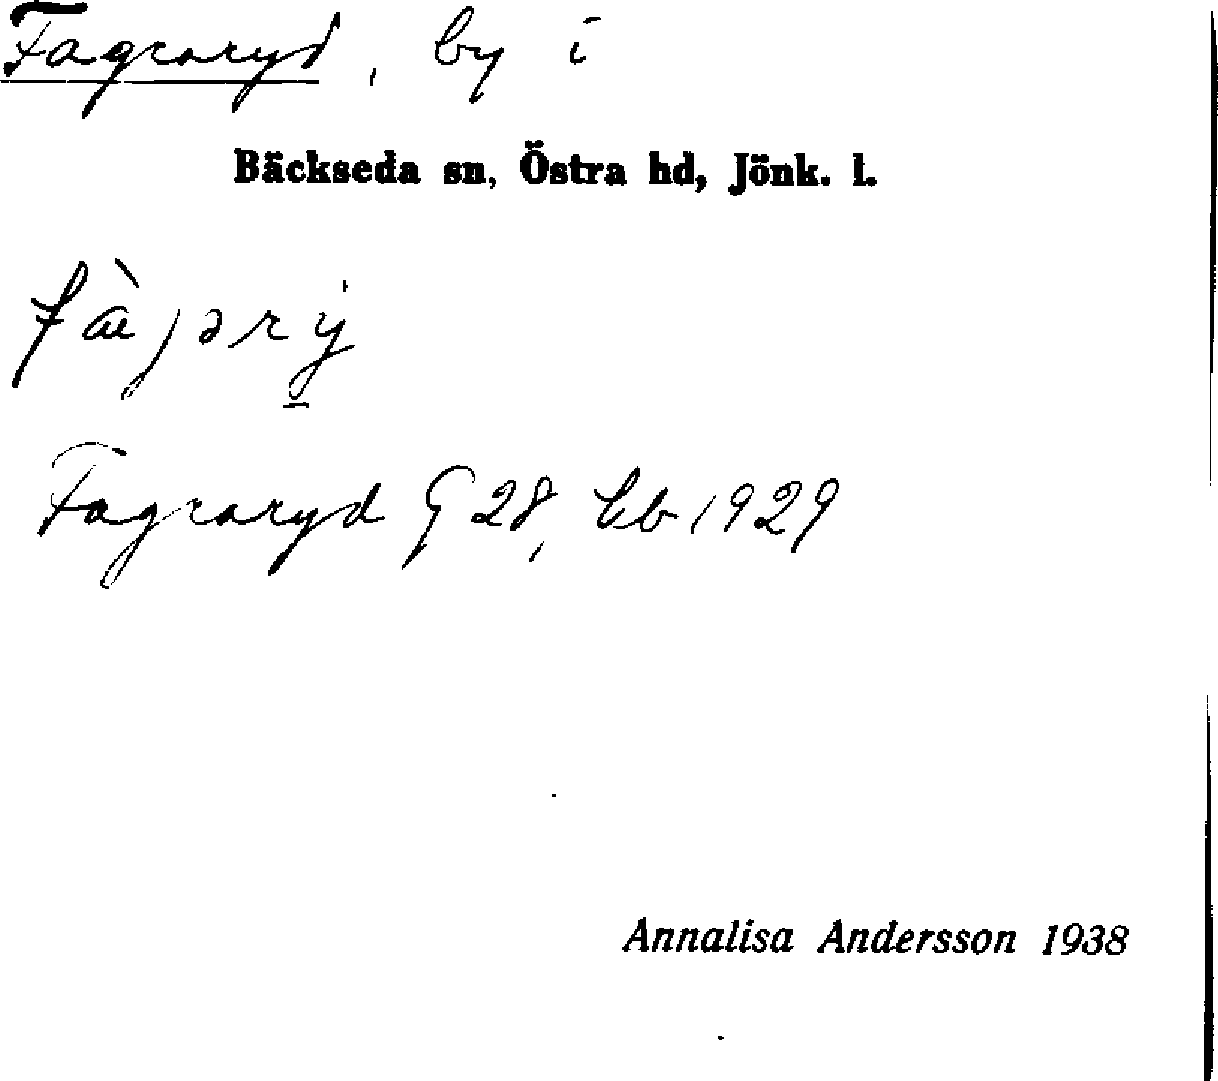 Fagraryd, by i
Bäckseda sn, Östra hd, Jönk. l.
Fagraryd G 28, Eb 1929
Annalisa Andersson 1938